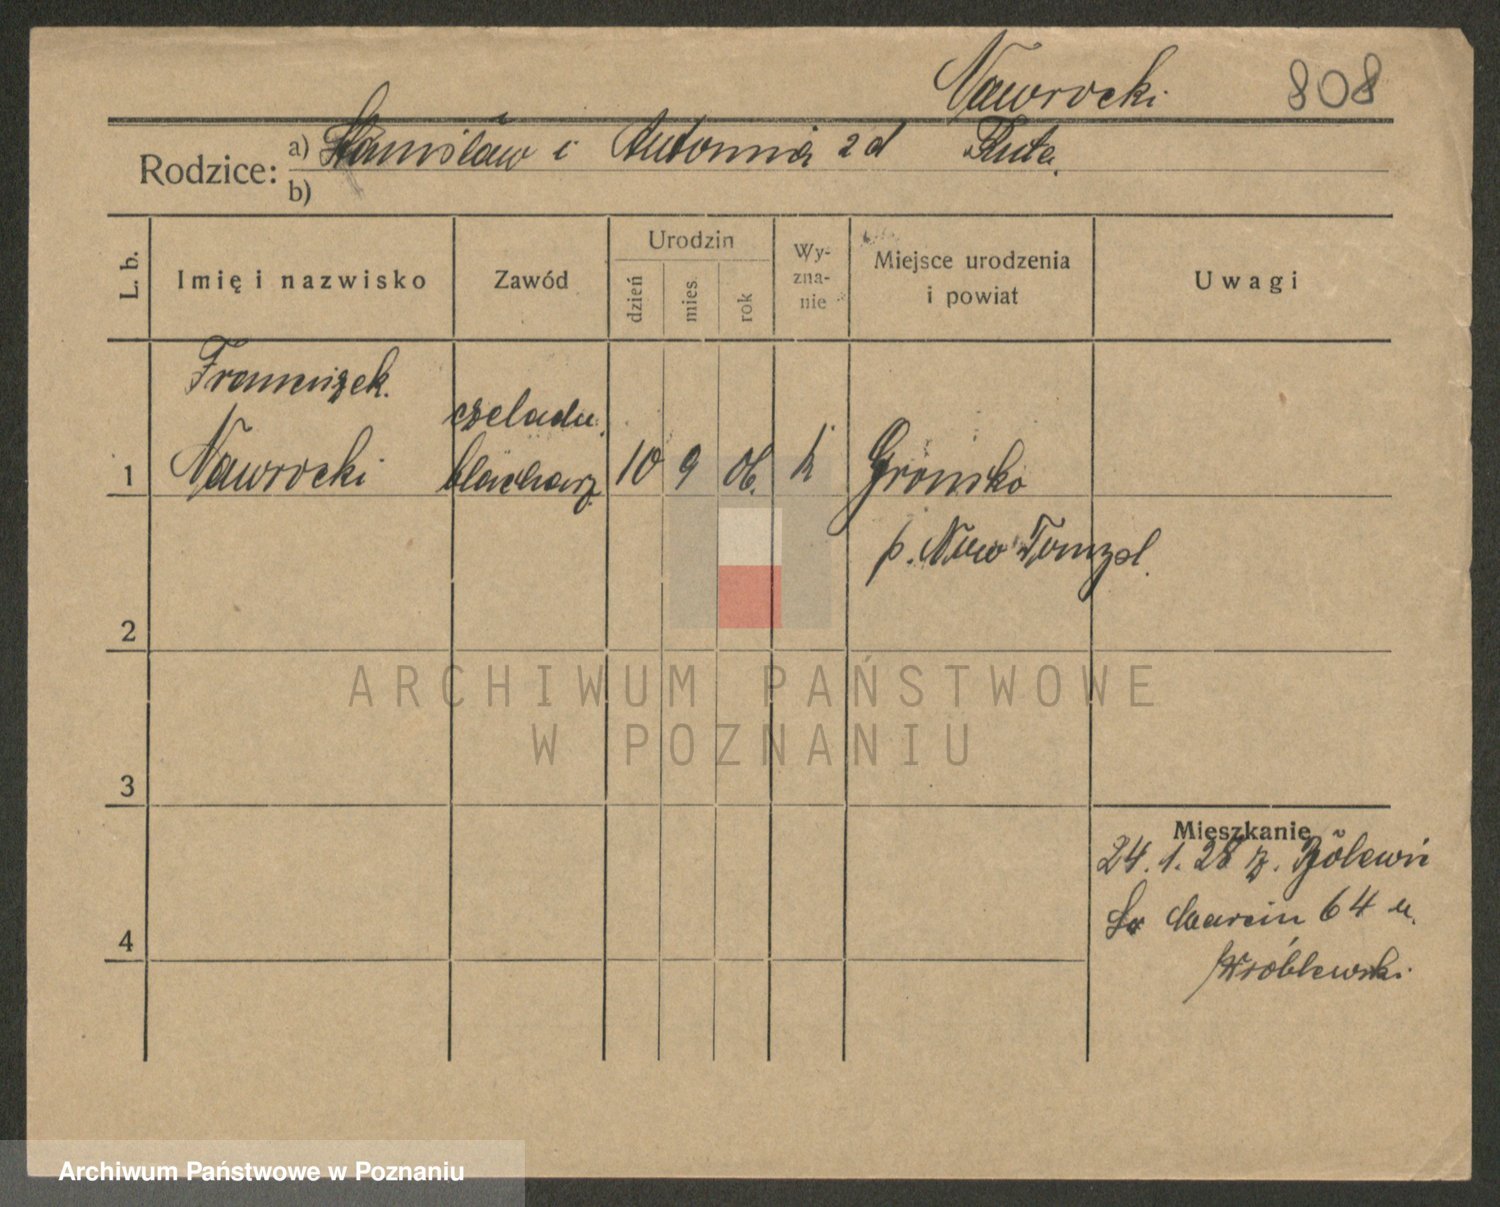 Nawrocki 808
Rodzice: a) Stanisław i Antonina zd Ruta.
b)
L. b. Imię i nazwisko Zawód Urodzin dzień mies. rok Wy-zna-nie Miejsce urodzenia i powiat Uwagi
Franciszek czeladn.
1 Nawrocki blacharz 10 9 06. k Grońsko
p. Now Tomyśl.
2
ARCHIWUM PAŃSTWOWE
W POZNANIU
3
Mieszkanie
24.1.28 z
4 Św Marcin 64 u.
Wróblewski.
Archiwum Państwowe w Poznaniu